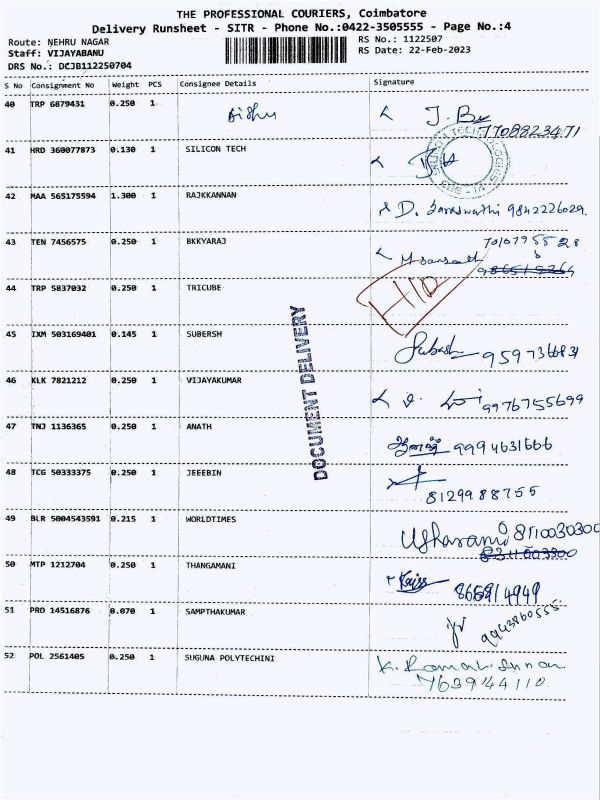 THE PROFESSIONAL COURIERS, Coimbatore
Delivery Runsheet - SITR - Phone No.:0422-3505555 - Page No.:4
Route: NEHRU NAGAR
RS No.: 1122507
Staff: VIJAYABANU
RS Date: 22-Feb-2023
DRS No.: DCJB112250704
S No Consignment No Weight PCS Consignee Details Signature
40 TRP 6879431 0.250 1 J. 7708823471
41 HRD 360077873 0.130 1 SILICON TECH
42 MAA 565175594 1.300 1 RAJKKANNAN D. Saraswathi 9842226029
43 TEN 7456575 0.250 1 BKKYARAJ
44 TRP 5837032 0.250 1 TRICUBE
45 IXM 503169401 0.145 1 SUBERSH Subash
46 KLK 7821212 0.250 1 VIJAYAKUMAR 9976755699
47 TNJ 1136365 0.250 1 ANATH 9994631666
48 TCG 50333375 0.250 1 JEEEBIN
8129988755
49 BLR 5004543591 0.215 1 WORLDTIMES Usharani 8110030300
50 MTP 1212704 0.250 1 THANGAMANI
51 PRO 14516876 0.070 1 SAMPTHAKUMAR
52 POL 2561405 0.250 1 SUGUNA POLYTECHINI K. Ramakrishnan
7639144110
DOCUMENT DELIVERY